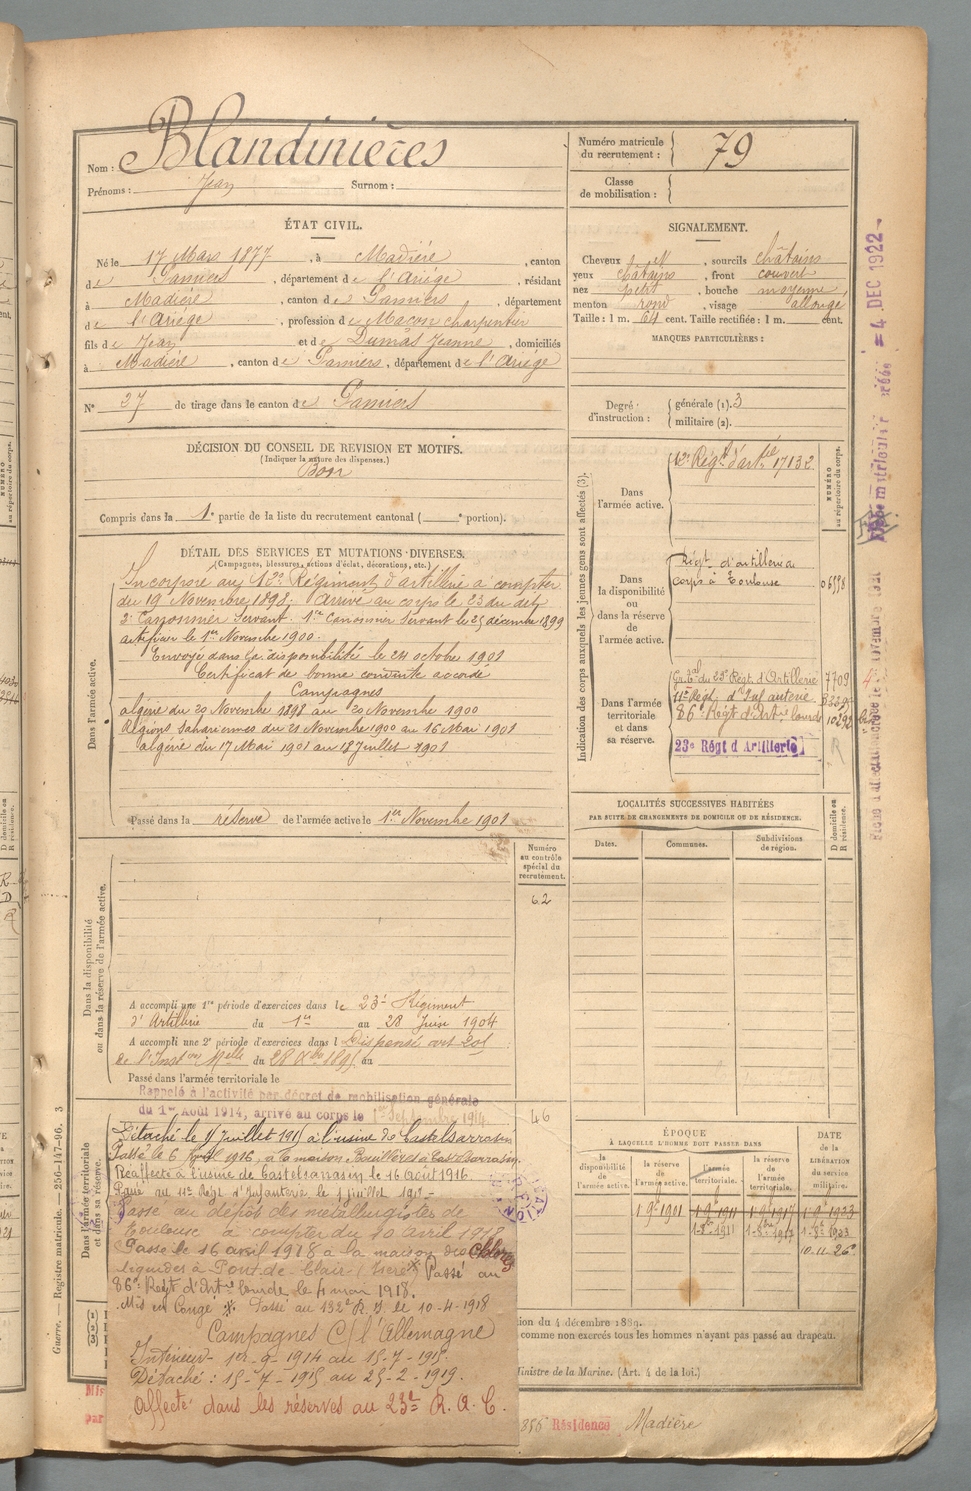 Nom : Blandinières
Prénoms : Jean Surnom :
Numéro matricule du recrutement : 79
Classe de mobilisation :
ÉTAT CIVIL.
Né le 17 Mars 1877, à Madière, canton
de Pamiers, département de l'Ariège, résidant
à Madière, canton de Pamiers, département
de l'Ariège, profession de Maçon charpentier
fils de Jean et de Dumas Jeanne, domiciliés
à Madière, canton de Pamiers, département de l'Ariège
N° 37 de tirage dans le canton de Pamiers
SIGNALEMENT.
Cheveux , sourcils châtains
yeux châtains, front couvert
nez petit, bouche moyenne
menton rond, visage allongé
Taille : 1 m. 64 cent. Taille rectifiée : 1 m. cent.
MARQUES PARTICULIÈRES :
Degré d'instruction : générale (1). 3
militaire (2).
DÉCISION DU CONSEIL DE REVISION ET MOTIFS.
(Indiquer la nature des dispenses.)
Bon
Compris dans la 1e partie de la liste du recrutement cantonal ( e portion).
DÉTAIL DES SERVICES ET MUTATIONS DIVERSES.
(Campagnes, blessures, actions d'éclat, décorations, etc.)
Dans l'armée active.
Incorporé au 12e Régiment d'artillerie à compter
du 19 Novembre 1898. Arrivé au corps le 23 du dit
2e Canonnier Servant. 1er Canonnier Servant le 25 décembre 1899
artificier le 1er Novembre 1900.
Envoyé dans la disponibilité le 24 octobre 1901
Certificat de bonne conduite accordé
Campagnes
Algérie du 20 Novembre 1898 au 20 Novembre 1900
Régions Sahariennes du 21 Novembre 1900 au 16 Mai 1901
Algérie du 17 Mai 1901 au 18 Juillet 1901
Passé dans la réserve de l'armée active le 1er Novembre 1901
Indication des corps auxquels les jeunes gens sont affectés (3).
NUMÉRO au répertoire du corps.
Dans l'armée active.
12e Régt d'artie 17132
Dans la disponibilité ou dans la réserve de l'armée active.
Régt d'artillerie
corps à Toulouse 06558
Dans l'armée territoriale et dans sa réserve.
du 23e Régt d'Artillerie 7709
11e Régt d'Infanterie
86e Régt d'Artie lourde 10292
23e Régt d'Artillerie
= 4 DEC 1922 -
LOCALITÉS SUCCESSIVES HABITÉES
PAR SUITE DE CHANGEMENTS DE DOMICILE OU DE RÉSIDENCE.
Dates. Communes. Subdivisions de région. D domicile ou R résidence.
Numéro au contrôle spécial du recrutement.
62
Dans la disponibilité ou dans la réserve de l'armée active.
A accompli une 1re période d'exercices dans le 23e Régiment
d'Artillerie du 1er au 28 Juin 1904
A accompli une 2e période d'exercices dans l Dispensé art 201
de l'Inston Melle du 28 Xbre 1895 au
Passé dans l'armée territoriale le
Rappelé à l'activité par décret de mobilisation générale
du 1er Août 1914, arrivé au corps le 1er Septembre 1914
46
Dans l'armée territoriale et dans sa réserve.
Détaché le 15 Juillet 1915 à l'usine de Castelsarrasin
Passé le 6 Avril 1916, à la maison Bouillères à Castelsarrasin.
Réaffecté à l'usine de Castelsarrasin le 16 Août 1916.
Passé au 11e Régt d'Infanterie le 1 juillet 191
Passé au dépôt des métallurgistes de
Toulouse à compter du 10 Avril 1918
Passé le 16 avril 1918 à la maison des Chlores
liquides à Pont de Claix (Isère) Passé au
86e Régt d'Artie lourde le 4 mai 1918.
Mis en Congé . Passé au 132e R.I. le 10-4-1918
Campagnes C/ l'Allemagne
Intérieur - 1er-9-1914 au 15-7-1915.
Détaché : 15-7-1915 au 25-2-1919.
Affecté dans les réserves au 23e R.A.C.
ÉPOQUE
À LAQUELLE L'HOMME DOIT PASSER DANS
la disponibilité de l'armée active. la réserve de l'armée active. l'armée territoriale. la réserve de l'armée territoriale.
DATE de la LIBÉRATION du service militaire.
1-9bre 1901 1-9bre 1911 1-9bre 1917 1-9-1923
1-8bre 1911 1-8bre 1917 1-8-1923
10.11.26
Guerre. — Registre matricule. — 256-147-96. 3
ion du 4 décembre 1889.
comme non exercés tous les hommes n'ayant pas passé au drapeau.
Ministre de la Marine. (Art. 4 de la loi.)
Résidence Madière